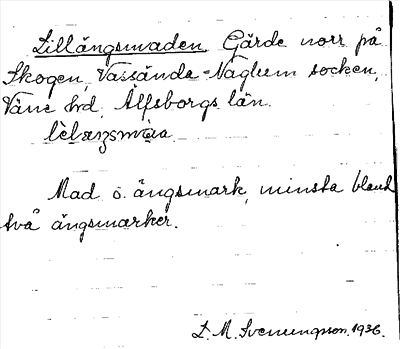 Lillängsmaden. Gärde norr på
Skogen, Vassända-Naglum socken,
Väne hd, Älfsborgs län.
Mad o. ängsmark, minsta bland
två ängsmarker.
L. M. Svenungsson. 1936.